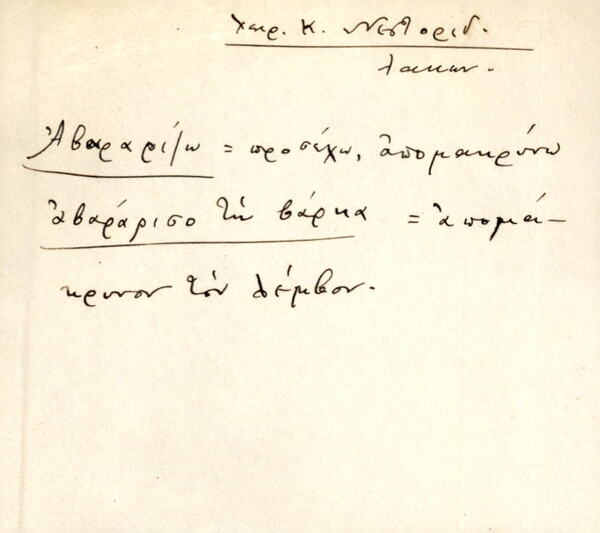 Χειρ. Κ. Νεστορίδ.
Λακων.
Ἀβαραρίζω = προσέχω, ἀπομακρύνω
ἀβαράρισο τὴ βάρκα = ἀπομά-
κρυνον τὸν λέμβον.